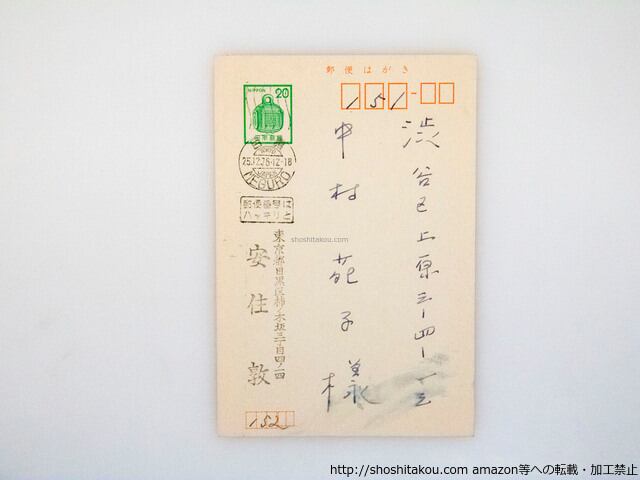 郵便はがき
151-
NIPPON 20
目黒
25.12.76.12-18
MEGURO
郵便番号は
ハッキリと
渋谷区上原三ー四ー
中村苑子様
shoshitakou.com
東京都目黒区柿ノ木坂三丁目四ノ四
安住敦
152
http://shoshitakou.com amazon等への転載・加工禁止